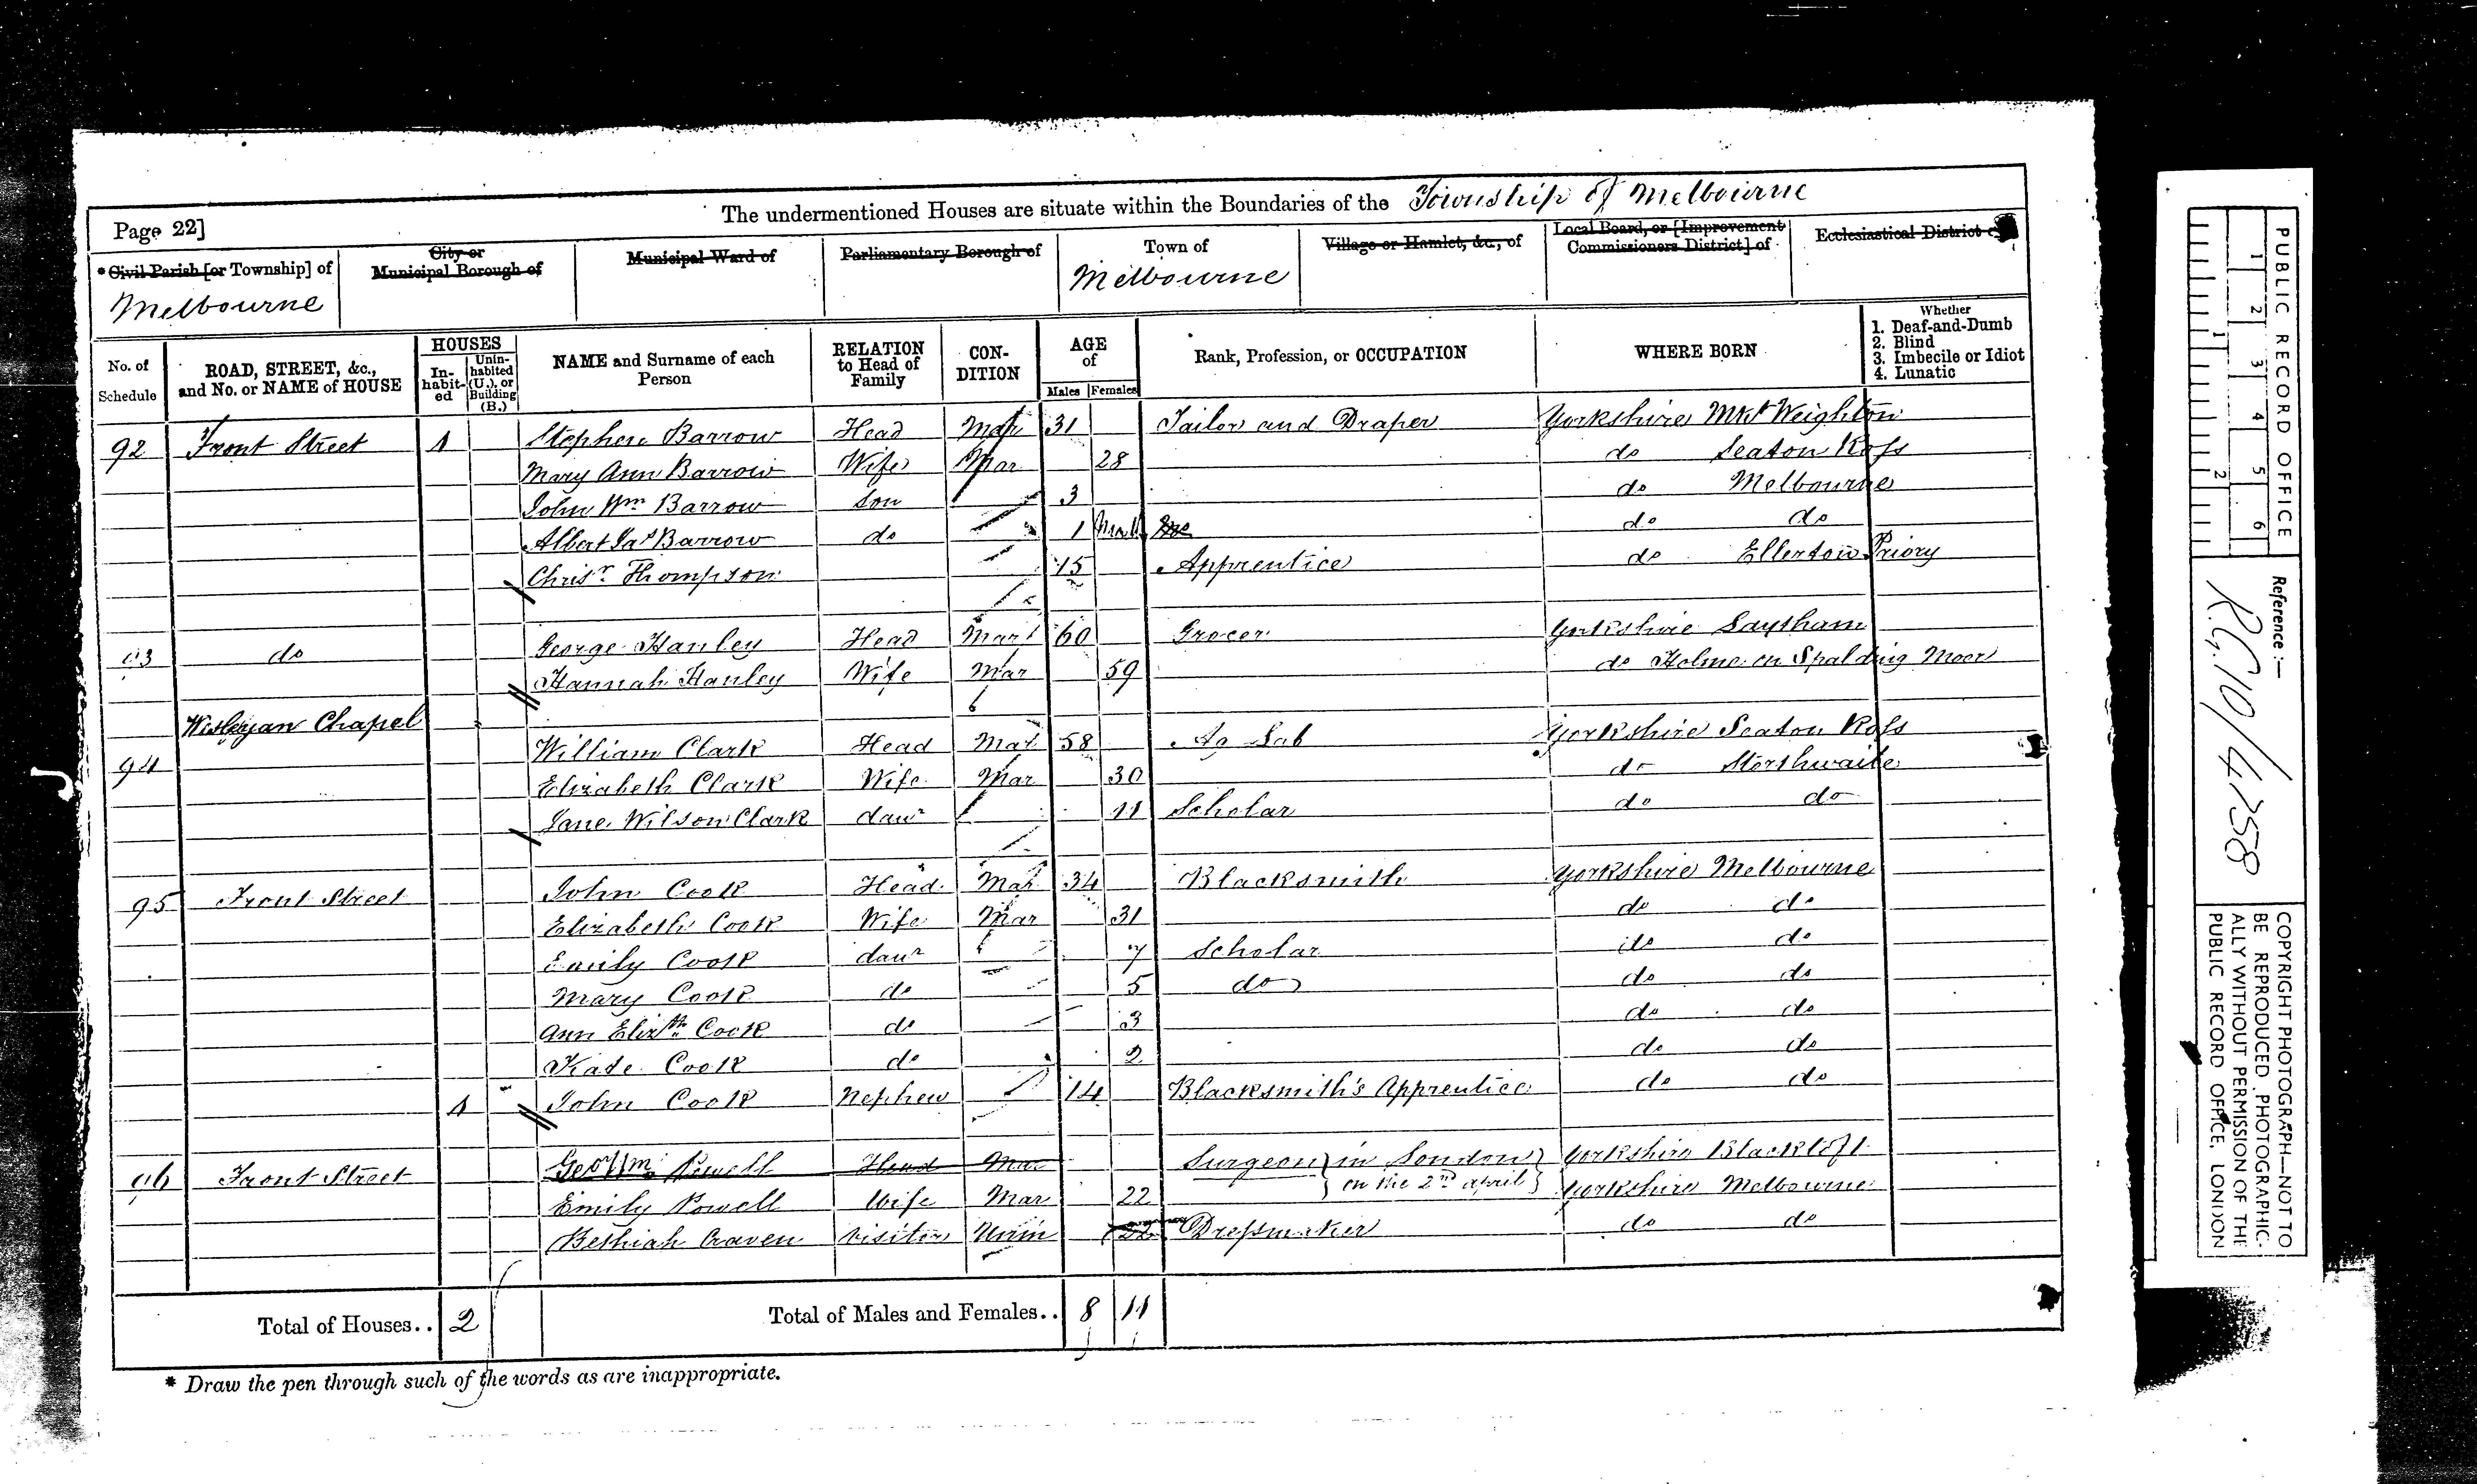 The undermentioned Houses are situate within the Boundaries of the Township of Melbourne
Page 22]
*Civil Parish [or Township] of
Melbourne
City or Municipal Borough of
Municipal Ward of
Parliamentary Borough of
Town of
Melbourne
Village or Hamlet, &c., of
Local Board, or [Improvement Commissioners District] of
Ecclesiastical District
No. of Schedule
ROAD, STREET, &c., and No. or NAME of HOUSE
HOUSES
In-habit-ed
Unin-habited (U.), or Building (B.)
NAME and Surname of each Person
RELATION to Head of Family
CON-DITION
AGE of
Males Females
Rank, Profession, or OCCUPATION
WHERE BORN
Whether
1. Deaf-and-Dumb
2. Blind
3. Imbecile or Idiot
4. Lunatic
92 Front Street 1 Stephen Barrow Head Mar 31 Tailor and Draper Yorkshire Mkt Weighton
Mary Ann Barrow Wife Mar 28 do Seaton Ross
John Wm Barrow son 3 do Melbourne
Albert Jas Barrow do 1 do do
Chrisr Thompson 15 Apprentice do Ellerton Priory
93 do George Hanley Head Mar 60 Grocer Yorkshire Laytham
Hannah Hanley Wife Mar 59 do Holme on Spalding Moor
Wesleyan Chapel
94 William Clark Head Mar 58 Ag Lab Yorkshire Seaton Ross
Elizabeth Clark Wife Mar 30 do Storthwaite
Jane Wilson Clark daur 11 Scholar do do
95 Front Street John Cook Head Mar 34 Blacksmith Yorkshire Melbourne
Elizabeth Cook Wife Mar 31 do do
Emily Cook daur 7 Scholar do do
Mary Cook do 5 do do do
Ann Elizth Cook do 3 do do
Kate Cook do 2 do do
1 John Cook Nephew 14 Blacksmith's Apprentice do do
96 Front Street Geo Wm Powell Head Mar Surgeon } in London } Yorkshire Blacktoft
on the 2nd april
Emily Powell Wife Mar 22 Yorkshire Melbourne
Bethiah Craven visitor Unm 22 Dressmaker do do
Total of Houses.. 2 Total of Males and Females.. 8 11
* Draw the pen through such of the words as are inappropriate.
PUBLIC RECORD OFFICE
1 2 3 4 5 6
1 2
Reference :—
R.G. 10/4758
COPYRIGHT PHOTOGRAPH—NOT TO
BE REPRODUCED PHOTOGRAPHIC-
ALLY WITHOUT PERMISSION OF THE
PUBLIC RECORD OFFICE, LONDON